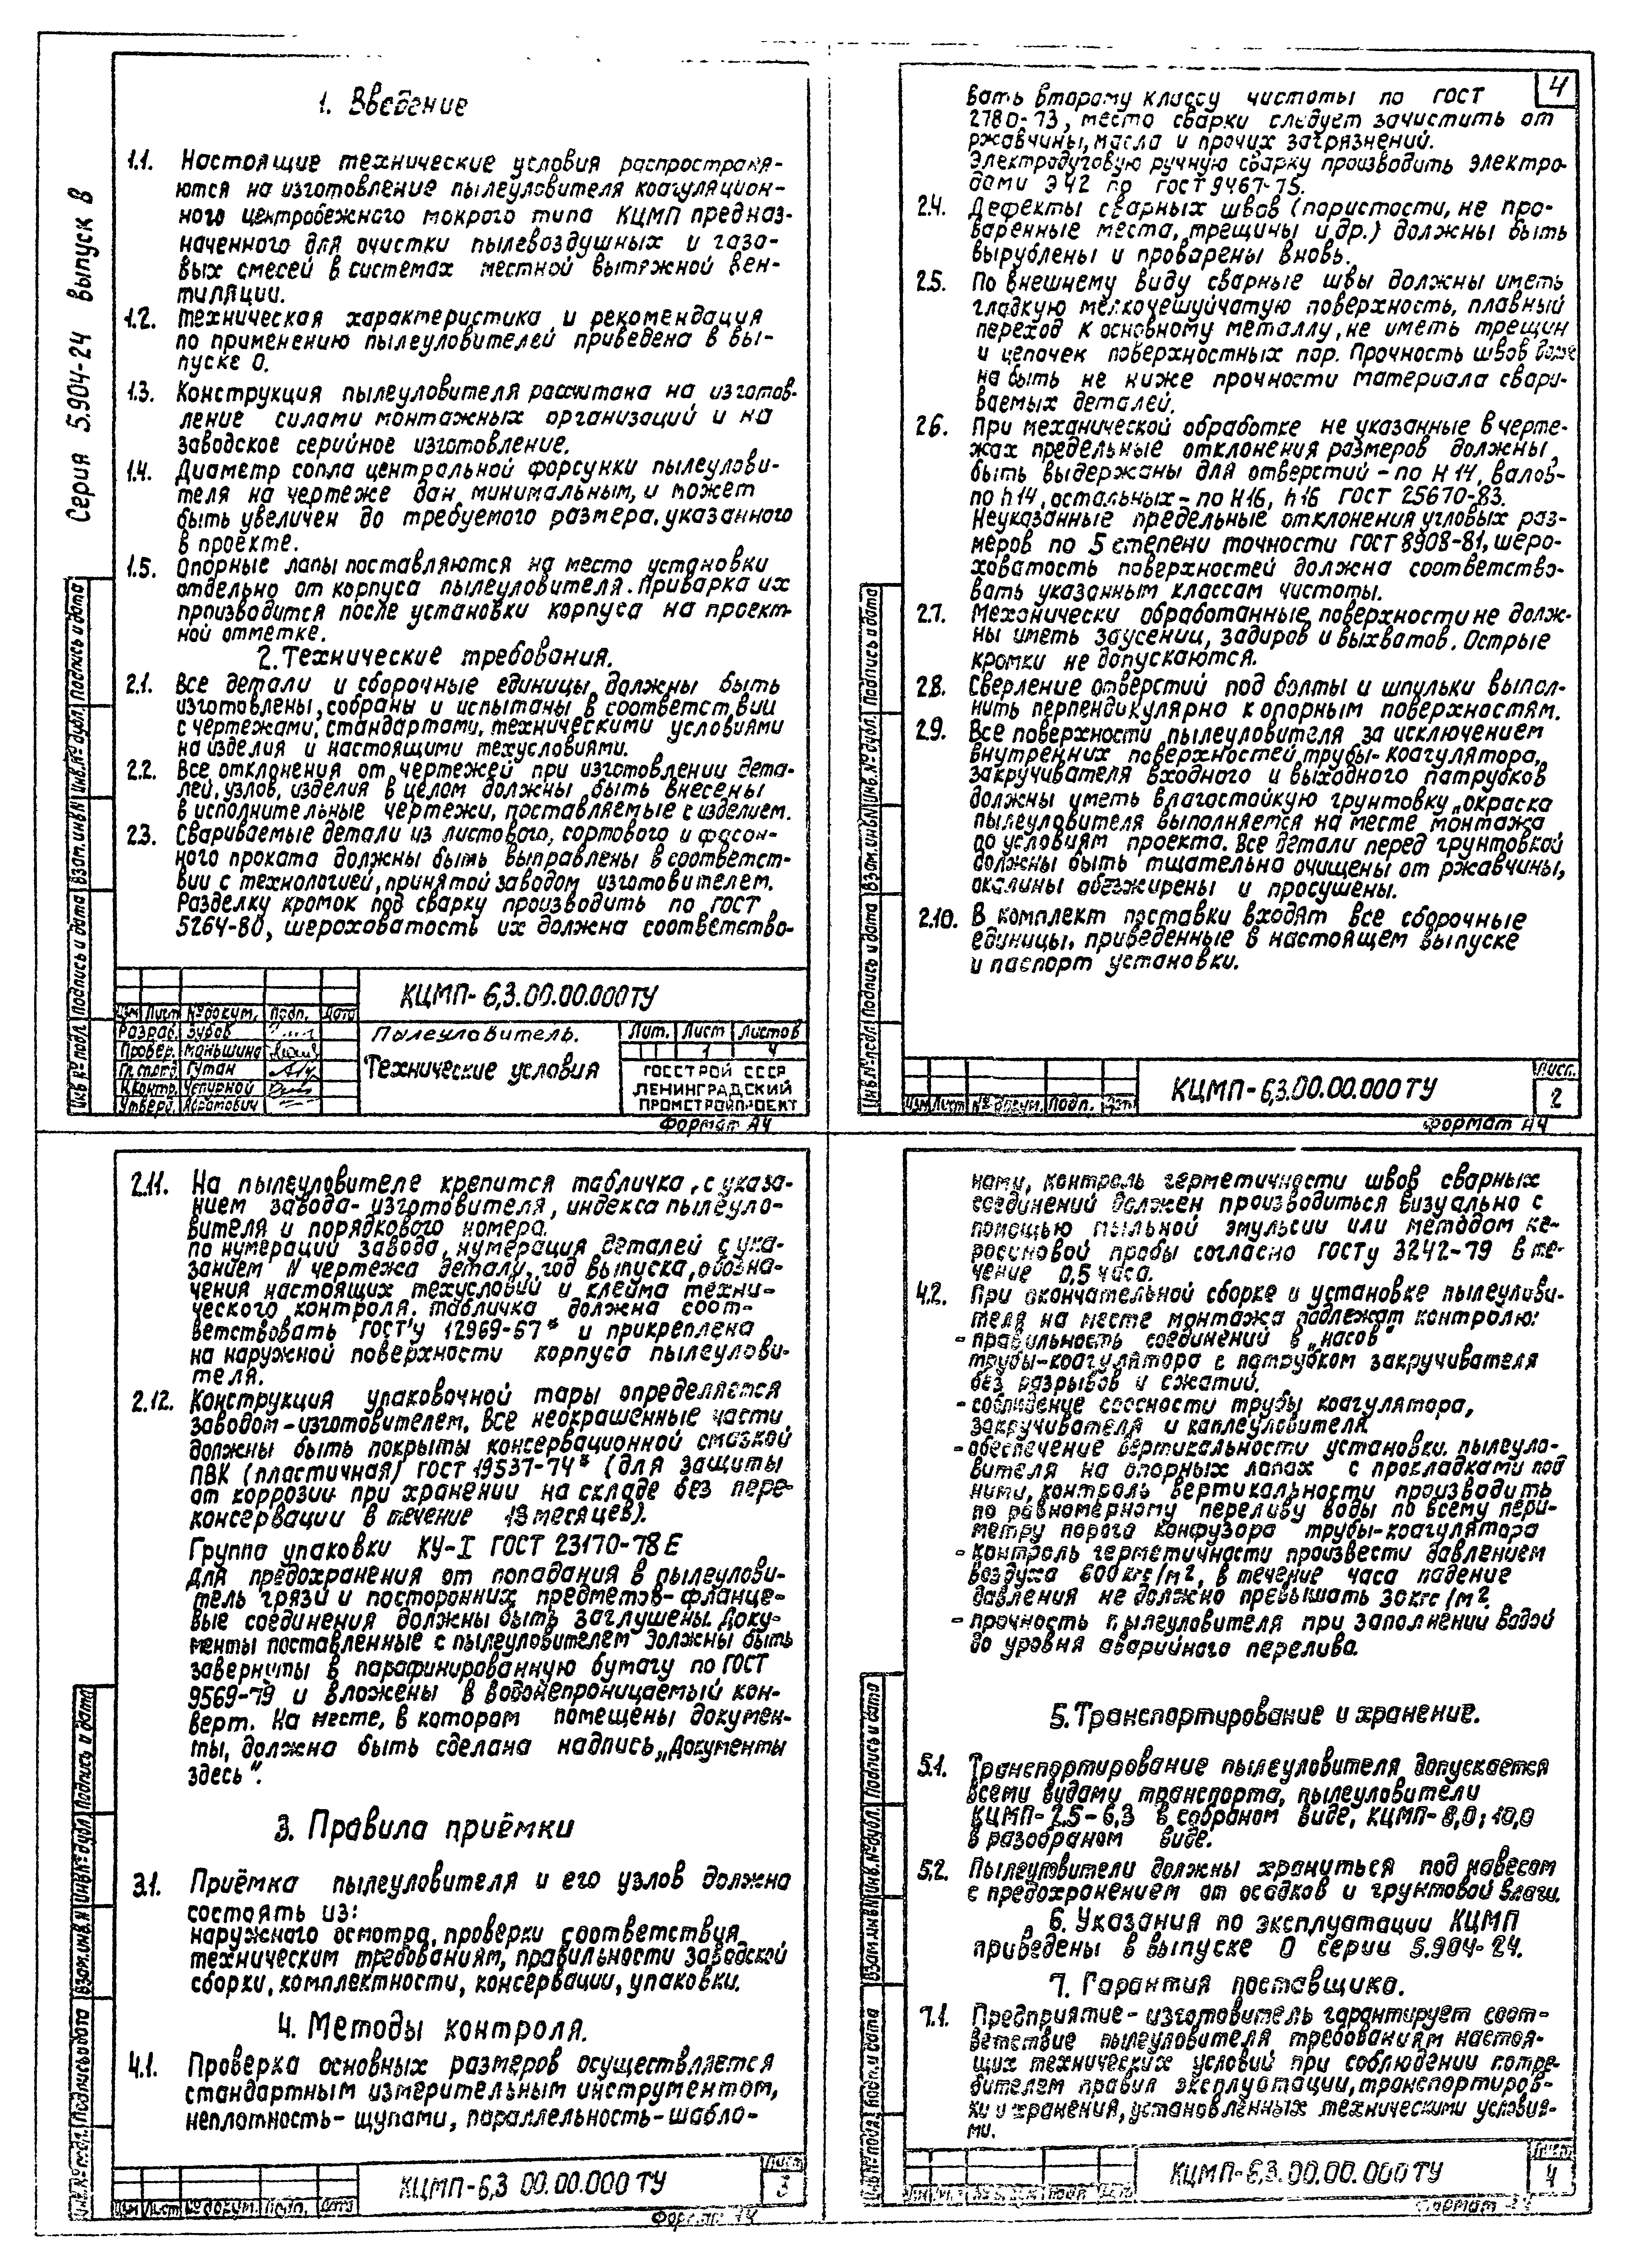 Серия 5.904-24 выпуск В
1. Введение
1.1. Настоящие технические условия распространя-
ются на изготовление пылеуловителя коагуляцион-
ного центробежного мокрого типа КЦМП предназ-
наченного для очистки пылевоздушных и газо-
вых смесей в системах местной вытяжной вен-
тиляции.
1.2. Техническая характеристика и рекомендация
по применению пылеуловителей приведена в вы-
пуске 0.
1.3. Конструкция пылеуловителя расчитана на изготов-
ление силами монтажных организаций и на
заводское серийное изготовление.
1.4. Диаметр сопла центральной форсунки пылеулови-
теля на чертеже дан минимальным, и может
быть увеличен до требуемого размера, указанного
в проекте.
1.5. Опорные лапы поставляются на место установки
отдельно от корпуса пылеуловителя. Приварка их
производится после установки корпуса на проект-
ной отметке.
2. Технические требования.
2.1. Все детали и сборочные единицы должны быть
изготовлены, собраны и испытаны в соответствии
с чертежами, стандартами, техническими условиями
на изделия и настоящими техусловиями.
2.2. Все отклонения от чертежей при изготовлении дета-
лей, узлов, изделия в целом должны быть внесены
в исполнительные чертежи, поставляемые с изделием.
2.3. Свариваемые детали из листового, сортового и фасон-
ного проката должны быть выправлены в соответст-
вии с технологией, принятой заводом изготовителем.
Разделку кромок под сварку производить по ГОСТ
5264-80, шероховатость их должна соответство-
КЦМП-6,3.00.00.000ТУ
Изм Лист № докум. Подп. Дата
Разраб. Зубов
Провер. Маньшина
Гл.спец. Гутман
Н.контр.
Утверд.
Пылеуловитель.
Технические условия
Лит. Лист Листов
1 4
ГОССТРОЙ СССР
ЛЕНИНГРАДСКИЙ
ПРОМСТРОЙПРОЕКТ
Формат А4
Инв № подл. Подпись и дата Взам.инв № Инв.№ дубл. Подпись и дата
4
вать второму классу чистоты по ГОСТ
2780-73, место сварки следует зачистить от
ржавчины, масла и прочих загрязнений.
Электродуговую ручную сварку производить электро-
дами Э42 по ГОСТ 9467-75.
2.4. Дефекты сварных швов (пористости, не про-
варенные места, трещины и др.) должны быть
вырублены и проварены вновь.
2.5. По внешнему виду сварные швы должны иметь
гладкую мелкочешуйчатую поверхность, плавный
переход к основному металлу, не иметь трещин
и цепочек поверхностных пор. Прочность швов долж
на быть не ниже прочности материала свари-
ваемых деталей.
2.6. При механической обработке не указанные в черте-
жах предельные отклонения размеров должны
быть выдержаны для отверстий - по Н14, валов-
по h14, остальных - по Н16, h16 ГОСТ 25670-83.
Неуказанные предельные отклонения угловых раз-
меров по 5 степени точности ГОСТ 8908-81, шеро-
ховатость поверхностей должна соответство-
вать указанным классам чистоты.
2.7. Механически обработанные поверхности не долж-
ны иметь заусениц, задиров и выхватов. Острые
кромки не допускаются.
2.8. Сверление отверстий под болты и шпильки выпол-
нить перпендикулярно к опорным поверхностям.
2.9. Все поверхности пылеуловителя за исключением
внутренних поверхностей трубы-коагулятора,
закручивателя входного и выходного патрубков
должны иметь влагостойкую грунтовку, окраска
пылеуловителя выполняется на месте монтажа
по условиям проекта. Все детали перед грунтовкой
должны быть тщательно очищены от ржавчины,
окалины обезжирены и просушены.
2.10. В комплект поставки входят все сборочные
единицы, приведенные в настоящем выпуске
и паспорт установки.
КЦМП-6,3.00.00.000ТУ
Лист
2
Изм Лист № докум. Подп. Дата
Формат А4
Инв № подл. Подпись и дата Взам.инв № Инв.№ дубл. Подпись и дата
2.11. На пылеуловителе крепится табличка, с указа-
нием завода-изготовителя, индекса пылеуло-
вителя и порядкового номера.
по нумерации завода, нумерация деталей с ука-
занием N чертежа детали, год выпуска, обозна-
чения настоящих техусловий и клейма техни-
ческого контроля. Табличка должна соот-
ветствовать ГОСТ'у 12969-67* и прикреплена
на наружной поверхности корпуса пылеулови-
теля.
2.12. Конструкция упаковочной тары определяется
заводом-изготовителем. Все неокрашенные части
должны быть покрыты консервационной смазкой
ПВК (пластичная) ГОСТ 19537-74* (для защиты
от коррозии при хранении на складе без пере-
консервации в течение 18 месяцев).
Группа упаковки КУ-I ГОСТ 23170-78Е
Для предохранения от попадания в пылеулови-
тель грязи и посторонних предметов-фланце-
вые соединения должны быть заглушены. Доку-
менты поставленные с пылеуловителем должны быть
завернуты в парафинированную бумагу по ГОСТ
9569-79 и вложены в водонепроницаемый кон-
верт. На месте, в котором помещены докумен-
ты, должна быть сделана надпись „Документы
здесь“.
3. Правила приёмки
3.1. Приёмка пылеуловителя и его узлов должна
состоять из:
наружного осмотра, проверки соответствия
техническим требованиям, правильности заводской
сборки, комплектности, консервации, упаковки.
4. Методы контроля.
4.1. Проверка основных размеров осуществляется
стандартным измерительным инструментом,
неплотность-щупами, параллельность-шабло-
КЦМП-6,3 00.00.000 ТУ
Лист
3
Изм Лист № докум. Подп. Дата
Формат А4
Инв.№ подл. Подпись и дата Взам.инв.№ Инв.№ дубл Подпись и дата
нами, контроль герметичности швов сварных
соединений должен производиться визуально с
помощью мыльной эмульсии или методом ке-
росиновой пробы согласно ГОСТу 3242-79 в те-
чение 0,5 часа.
4.2. При окончательной сборке и установке пылеулови-
теля на месте монтажа подлежат контролю:
- правильность соединений в „насов“
трубы-коагулятора с патрубком закручивателя
без разрывов и сжатий.
- соблюдение соосности трубы коагулятора,
закручивателя и каплеуловителя
- обеспечение вертикальности установки. пылеуло-
вителя на опорных лапах с прокладками под
ними, контроль вертикальности производить
по равномерному переливу воды по всему пери-
метру порога конфузора трубы-коагулятора
- контроль герметичности произвести давлением
воздуха 600кгс/м², в течение часа падение
давления не должно превышать 30кгс/м².
- прочность пылеуловителя при заполнении водой
до уровня аварийного перелива.
5. Транспортирование и хранение.
5.1. Транспортирование пылеуловителя допускается
всеми видами транспорта, пылеуловители
КЦМП-2,5-6,3 в собраном виде, КЦМП-8,0; 10,0
в разобраном виде.
5.2. Пылеуловители должны храниться под навесом
с предохранением от осадков и грунтовой влаги.
6. Указания по эксплуатации КЦМП
приведены в выпуске 0 серии 5.904-24.
7. Гарантия поставщика.
7.1. Предприятие-изготовитель гарантирует соот-
ветствие пылеуловителя требованиям настоя-
щих технических условий при соблюдении потре-
бителем правил эксплуатации, транспортиров-
ки и хранения, установленных техническими условия-
ми.
КЦМП-6,3.00.00.000 ТУ
Лист
4
Формат